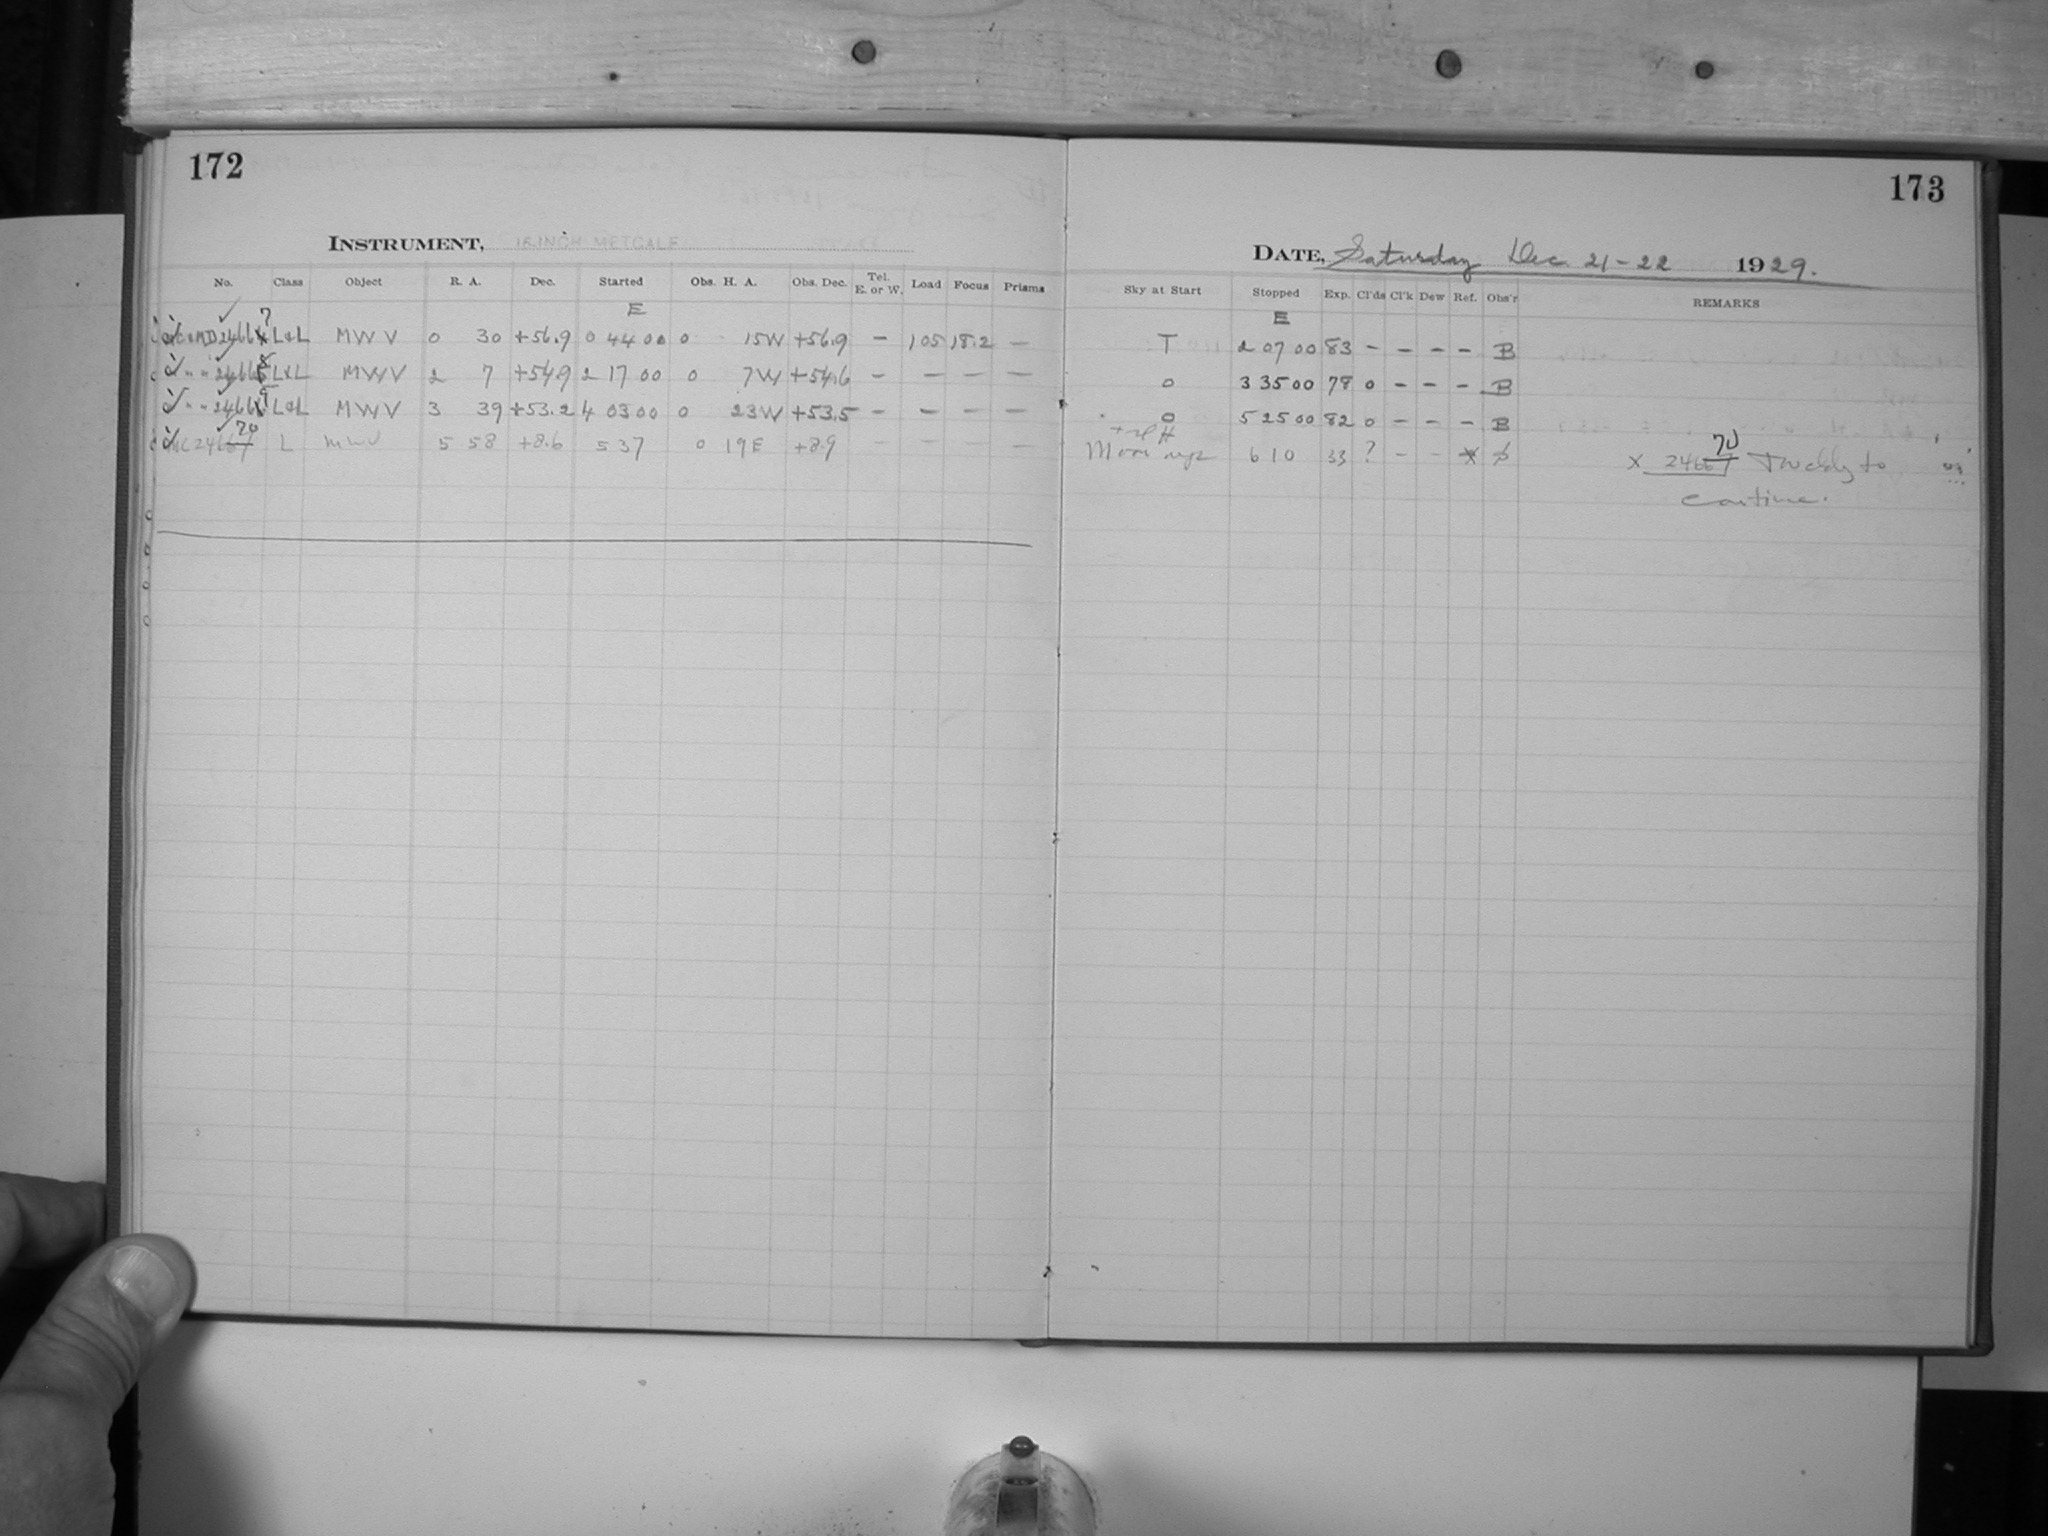 172
173
INSTRUMENT, 16 INCH METCALF
DATE, Saturday Dec. 21-22 1929.
No. Class Object R. A. Dec. Started Obs. H. A. Obs. Dec. Tel. E. or W. Load Focus Prisms Sky at Start Stopped Exp. Cl'ds Cl'k Dew Ref. Obs'r REMARKS
E E
7
2466 L&L MWV 0 30 +56.9 0 44 00 0 15W +56.9 - 105 18.2 - T 2 07 00 83 - - - - B
8
" " 2466 L&L MWV 2 7 +54.9 2 17 00 0 7W +54.6 - - - - 0 3 35 00 78 0 - - - B
9
" " 2466 L&L MWV 3 39 +53.2 4 03 00 0 23W +53.5 - - - - 0 5 25 00 82 0 - - - B
70
MC 24667 L MWV 5 58 +8.6 5 37 0 19E +8.9 - Moon up 6 10 33 ? - -
70
X 24667 to
continue.